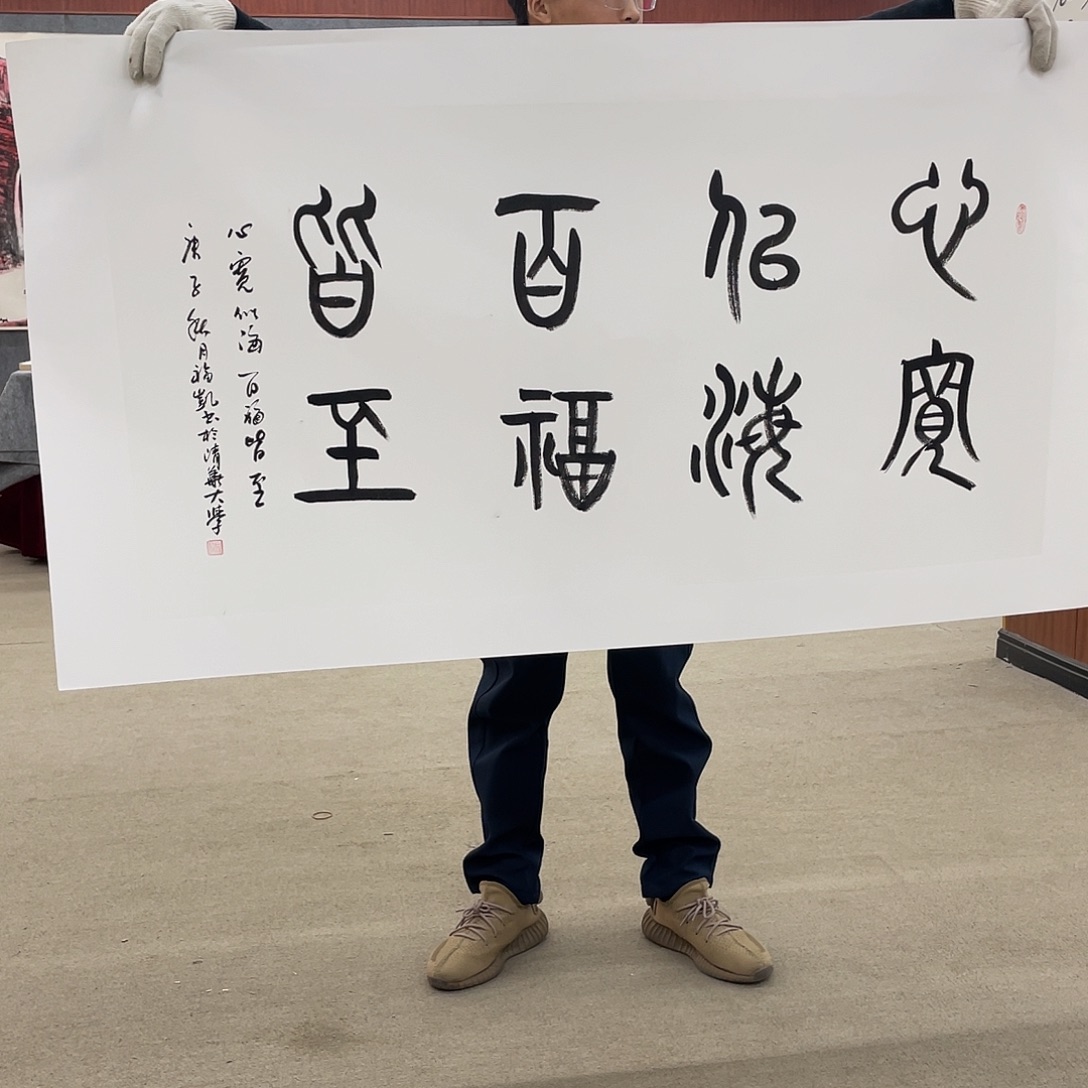 心寬
佀海
百福
皆至
心寬似海百福皆至
庚子秋月福凱書於清華大學